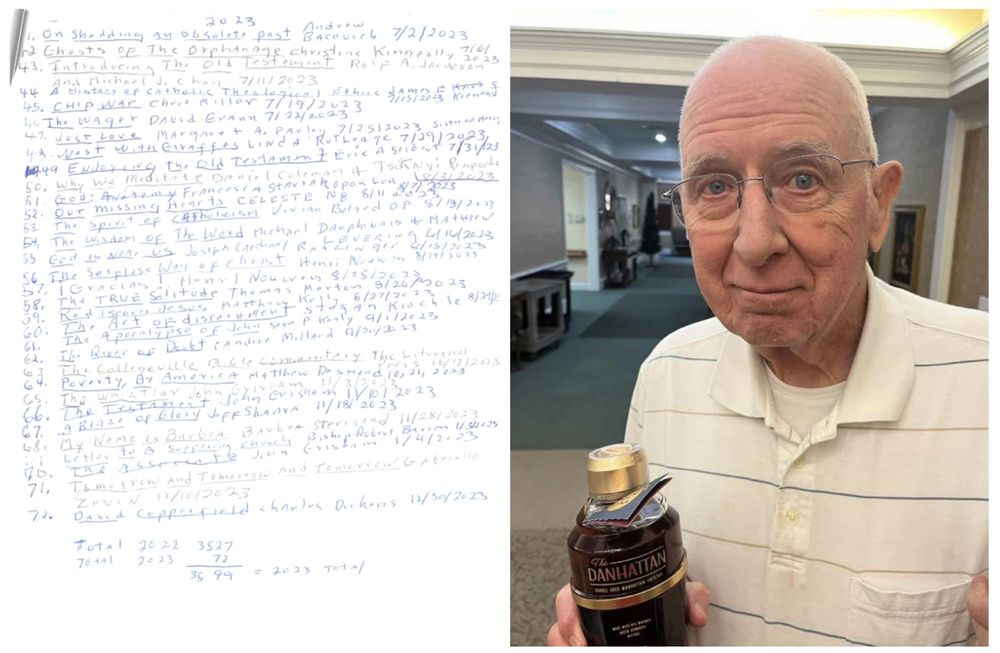 2023
1. On Shedding an Obsolete past Andrew Bacevich 7/2/2023
Ghosts of The Orphanage Christine Kenneally 7/6/ 2023
43. Introducing The Old Testament Rolf A. Jacobson
and Michael J. Chan 7/11/2023
44 A History of Catholic Theological Ethics James F. Keenan S 7/15/2023
45. CHIP WAR Chris Miller 7/19/2023
The WAGER DAVID Grann 7/22/2023
47. Just Love Margaret A. Farley 7/25/2023
West With Giraffes LINDA Rutledge 7/29/2023
49 Enjoying the Old Testament Eric A Seibert 7/31/23
50. Why We Meditate Daniel Goleman & Tsoknyi Rinpoche
51. God: Anatomy Francesca STAVRAKOPOULOU 8/7/2023
52. Our missing Hearts CELESTE NG 8/11/2023
53. The Spirit of Catholicism Vivian Boland OP 8/13/2023
54. The Wisdom of The Word Michael Dauphinais & Matthew
LEVERING
55 God is Near us Joseph Cardinal RATZINGER
56. The Selfless Way of Christ Henri Nouwen 8/19/2023
57. Gracias! Henri Nouwen 8/25/2023
58. The TRUE Solitude Thomas Merton 8/26/2023
59. Rediscover Jesus Matthew Kelly 8/27/2023
60. The Art of discernment Stefan Kiechle 8/29/
61. The Apocalypse of John Sean P Kealy 9/1/2023
62. The River of Doubt Candice Millard 9/20/2023
63 The Collegeville Bible Commentary The Liturgical Press 10/17/2023
64. Poverty, By America Matthew Desmond 10, 21, 2023
65. The Whistler John Grisham 11/3/2023
66. The Testament John Grisham 11/10/2023
67. A Blaze of Glory Jeff Shaara 11/18/2023
68. My Name is Barbra Barbra Streisand 11/28/2023
Letter to A Suffering Church Bishop Robert Barron
70. The Associate John Grisham
71. Tomorrow And Tomorrow And Tomorrow Gabrielle
Zevin 12/10/2023
72. David Copperfield Charles Dickens 12/30/2023
Total 2022 3527
Total 2023 72
3599 = 2023 Total
The
DANHATTAN
BARREL AGED MANHATTAN COCKTAIL
MADE WITH RYE WHISKEY